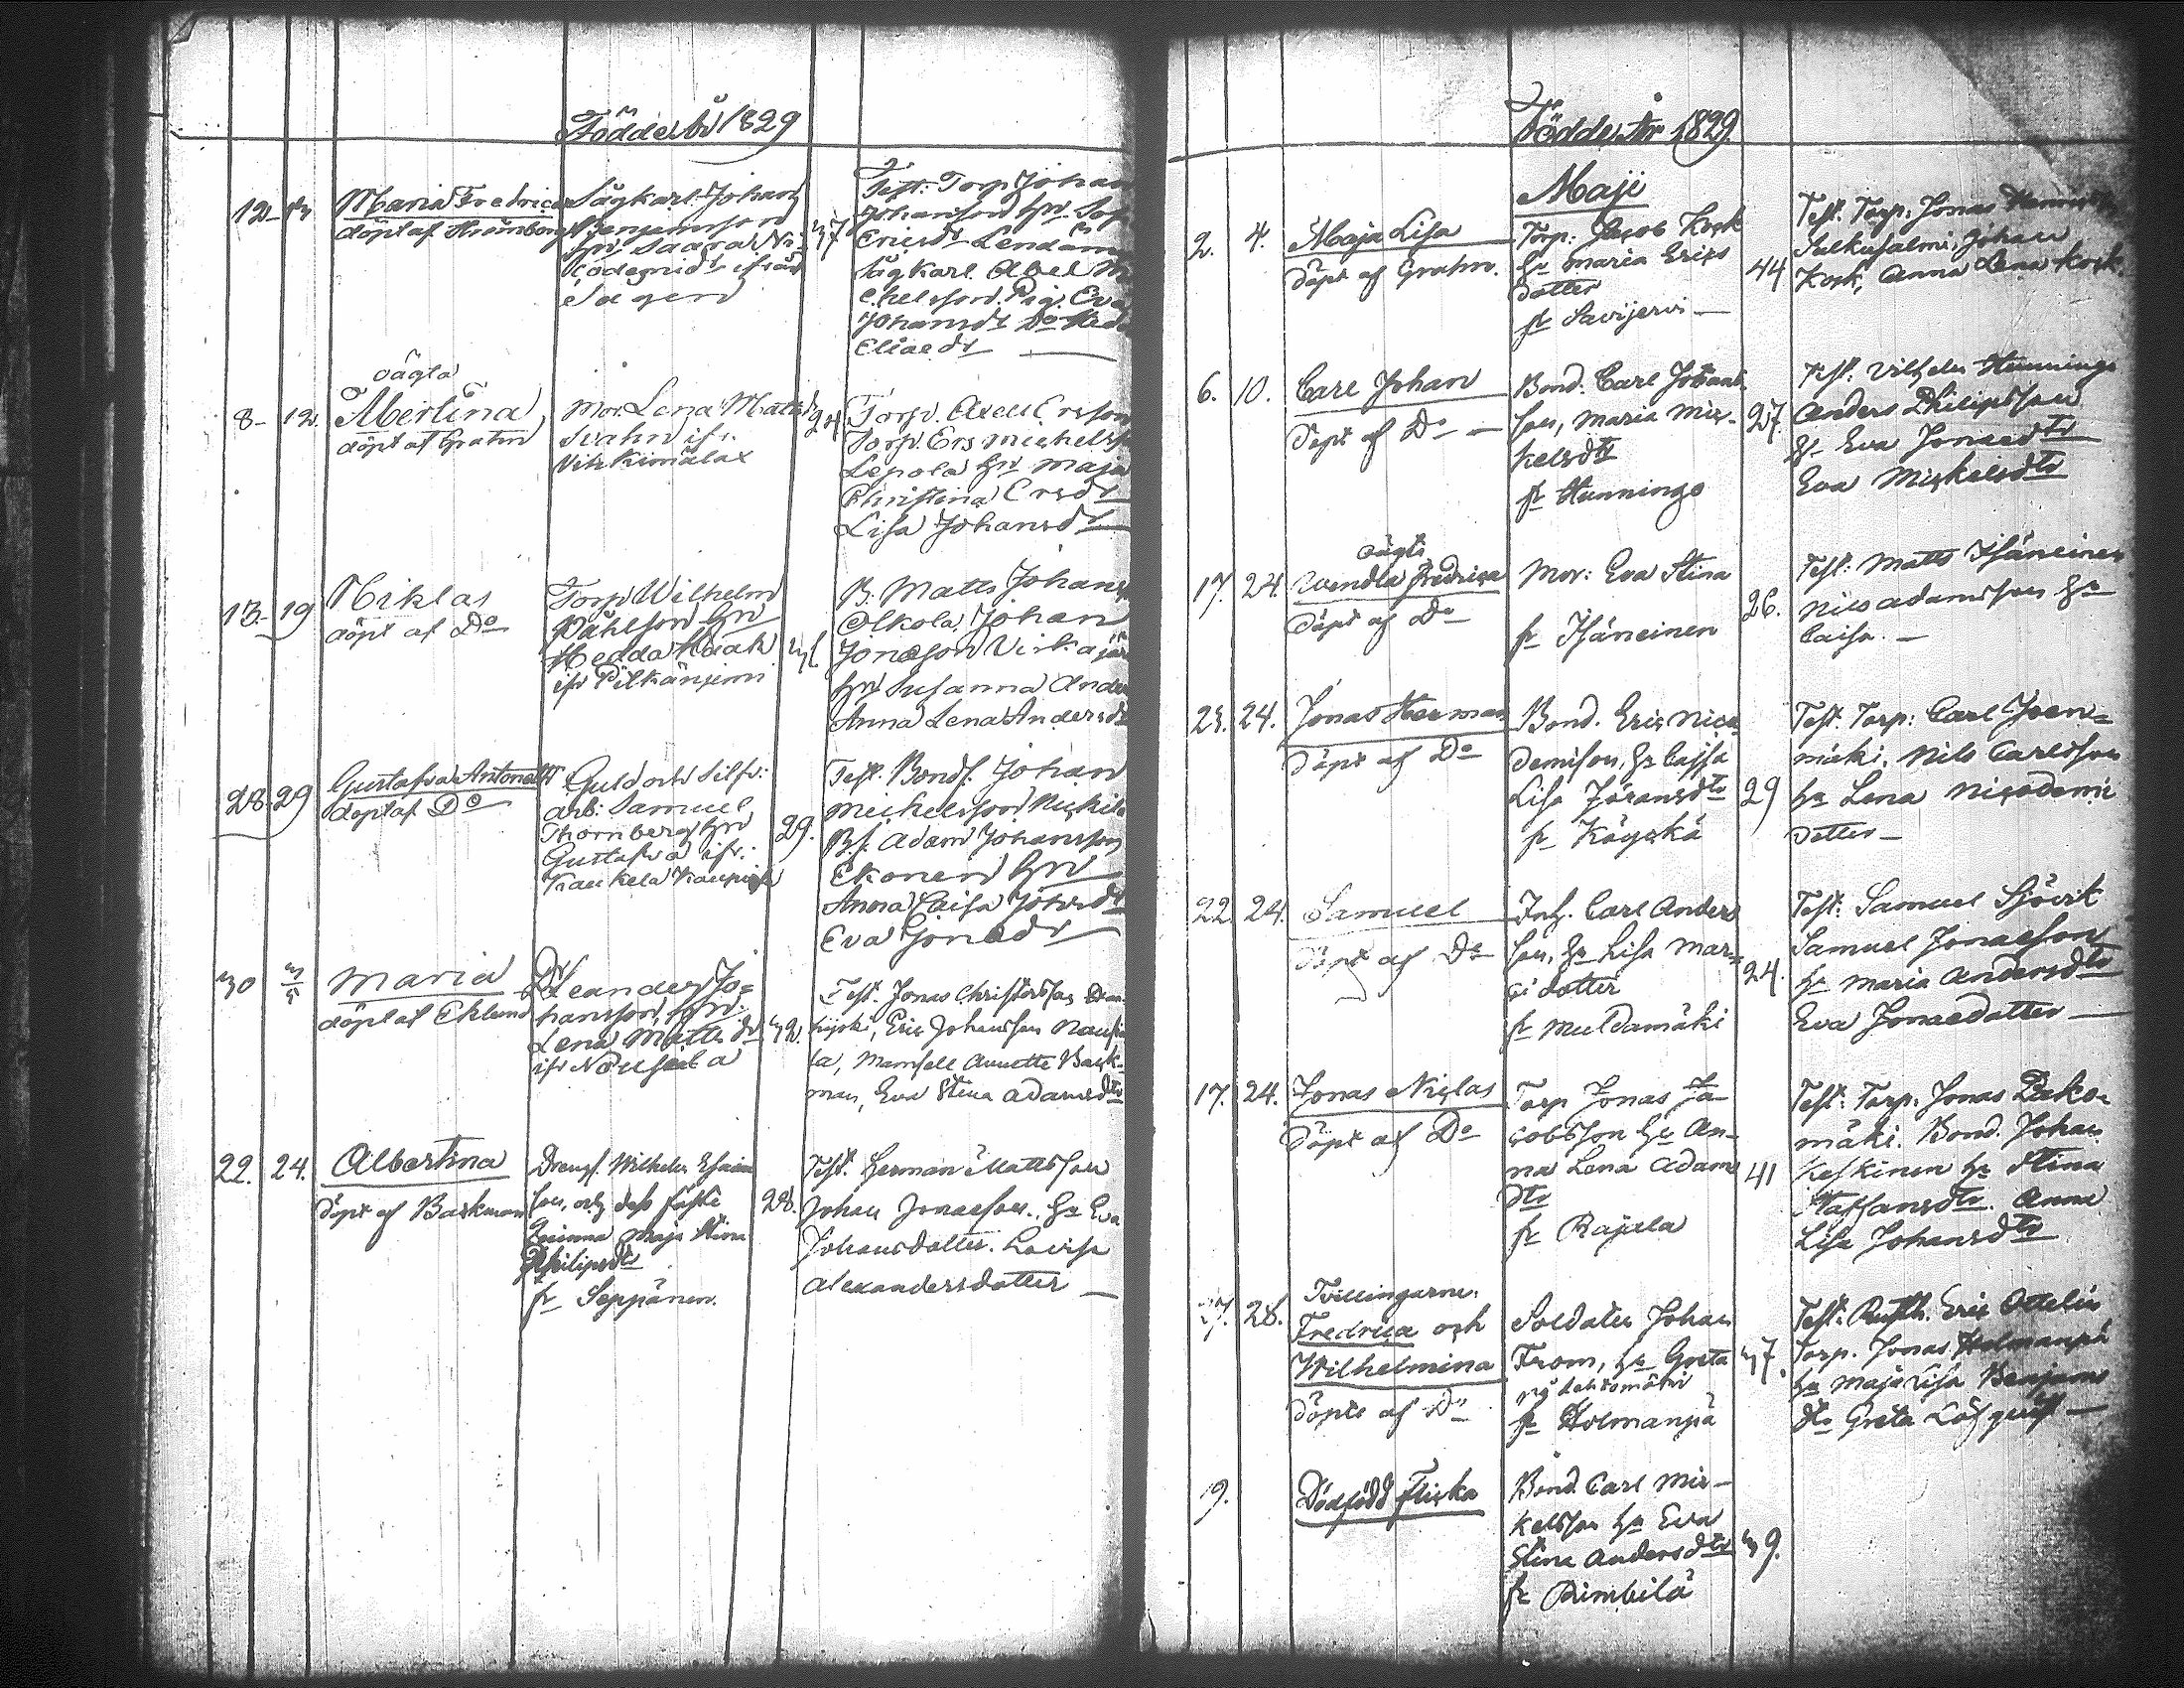 Födde År 1829
12
Maria Fredrica Sågkarl. Johan
döpt af Strömborg Benjamsson
hu Saara Ni
codemidr ifrån
Sågen
37
Test: Torp Johan
Johansson hu Sof
Ericsdr
Sågkarl Abel Mi
chelsson. Pig. Eva
Johansdr Do Hed
Eliaedr
oägta
8 12 Albertina
döpt af Grahn
Mor. Lena Mattsd
Svahn ifr.
24
Torp. Axell Ersson
Torp. Ers Michelss
Lepola hu Maja
Christina Ersdr
Lisa Johansdr
13 19 Niklas
döpt af Do
Torp Wilhelm
Påhlson hu
Hedda Haak
ifr Pitkänjemi
B. Matts Johans
Olkola, Johan
Jonasson
hu Susanna Ande
Anna Lena Andersdr
28 29 Gustafva Antonett
döpt af Do
Guld och Silfr.
arb. Samuel
Thornberg hu
Gustafva ifr.
29.
Test. Bonds. Johan
Michelsson
B.s. Adam Johansson
Ekonen hu
Anna Caisa Johsdr
Eva Jonaedr
30 3/5 Maria
döpt af Eklund
Leander Jo=
hansson, hu.
Lena Mattsdr
ifr Nousiala
32.
Test. Jonas Christersson
Eric Johansson Nousia
la, Mamsell Annette Back-
man, Eva Stina Adamsdtr
22. 24. Albertina
döpt af Backman
Drengs. Wilhelm Esaias
son, och dess fäste
qvinna Maja Stina
Philipsdtr
fr Seppänen.
28.
Test. Herman Mattsson
Johan Jonaesson. Hu Eva
Johansdotter. Lovisa
Alexandersdotter
Födde År 1829.
Maji
2. 4. Maja Lisa
Döpt af Grahn.
Torp: Jacob Kock
Hu Maria Erics
dotter
fr Savijervi
44
Test. Torp. Jonas
Salkusalmi, Johan
Kock, Anna Lena Kock.
6. 10. Carl Johan
Döpt af Do
Bond. Carl Johans
son, Maria Mic-
kelsdtr
fr Hunningo
27
Test: Vilhelm Hunningo
Anders Philipsson
Hu Eva Jonaedtr
Eva Mickelsdtr
oägta
17. 24. Wendla Fredrica
Döpt af Do
Mor: Eva Stina
fr Isäneinen
26.
Test: Matts Isäneinen
Nils Adamsson hu
Caisa.
24. Jonas Herman
Döpt af Do
Bond. Eric Nico
demison, Hu Cajsa
Lisa Jöransdtr
fr Köyckä
29
Test. Torp: Carl Joen=
mäki. Nils Carlsson
hu Lena Nicodemi
dotter
22 24. Samuel
Döpt af Do
Inh. Carl Anders
son, Hu Lisa Mar=
ci dotter
fr Multamäki
24.
Test: Samuel Sjövik
Samuel Jonaeson
hu Maria Andersdtr
Eva Jonaedotter
17. 24. Jonas Niclas
Döpt af Do
Torp Jonas Ja-
cobsson hu An-
na Lena Adams
dtr
fr Rajala
41
Test: Torp. Jonas Pako-
mäki. Bond. Johan
Keskinen hu Stina
Staffansdtr. Anna
Lisa Johansdtr
Tvillingarne.
27. 28. Fredrica och
Wilhelmina
döpte af Do
Soldaten Johan
From, hu Greta
fr Holmanpä
37.
Test: Rusth. Eric Ottelin
Torp. Jonas Holmanpä
hu Maja Lisa Benjams
dtr Greta Löfquist
19. Dödfödd Flicka
Bond Carl Mic-
kelsson hu Eva
Stina Andersdtr
fr Rimbilä
39.